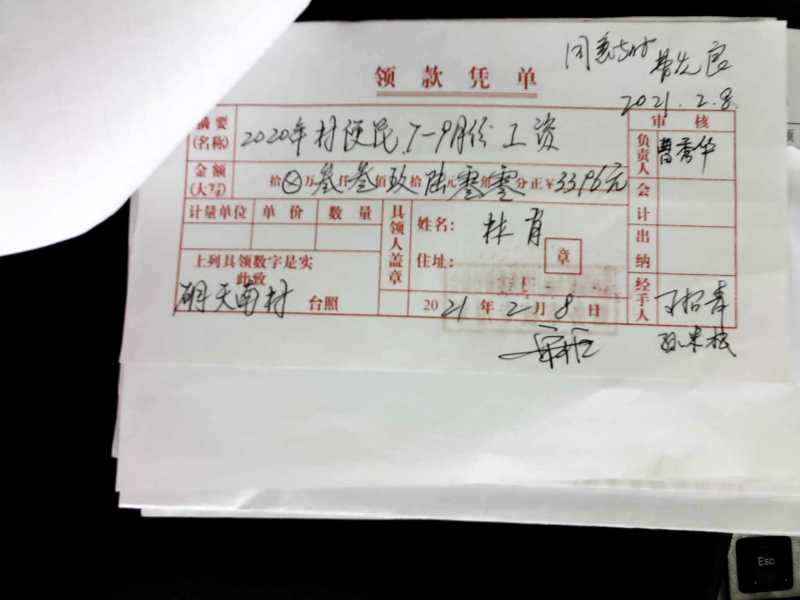 同意支付
2021.2.8
领款凭单
摘要(名称) 2020年村便民 7-9月份工资
审核
负责人 曹秀华
金额(大写) 拾⊗万叁仟叁佰玖拾陆元零角零分正¥3396元
计量单位 单价 数量
会计
出纳
具领人盖章
姓名: 林肖
住址:
章
上列具领数字是实
此致
明天南村 台照
2021年2月8日
经手人
Esc